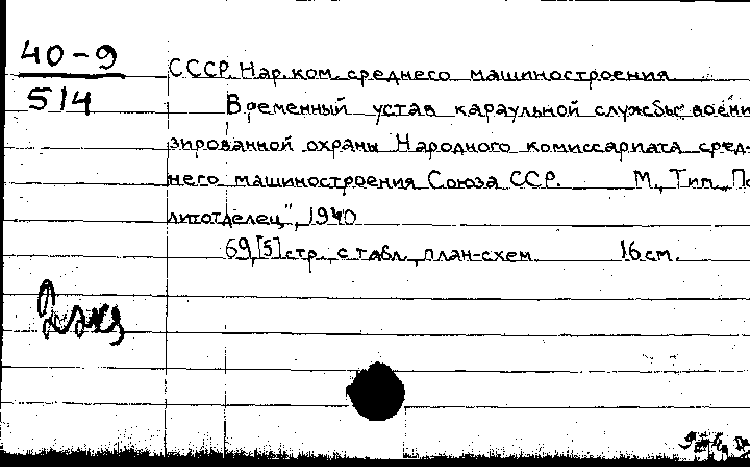 40-9
514
СССР. Нар. ком. среднего машиностроения
Временный устав караульной службы воени
зированной охраны Народного комиссариата сред-
него машиностроения Союза ССР. М., Тип. „По
литотделец", 1940
69,[5] стр. с табл., план-схем. 16 см.
2 экз